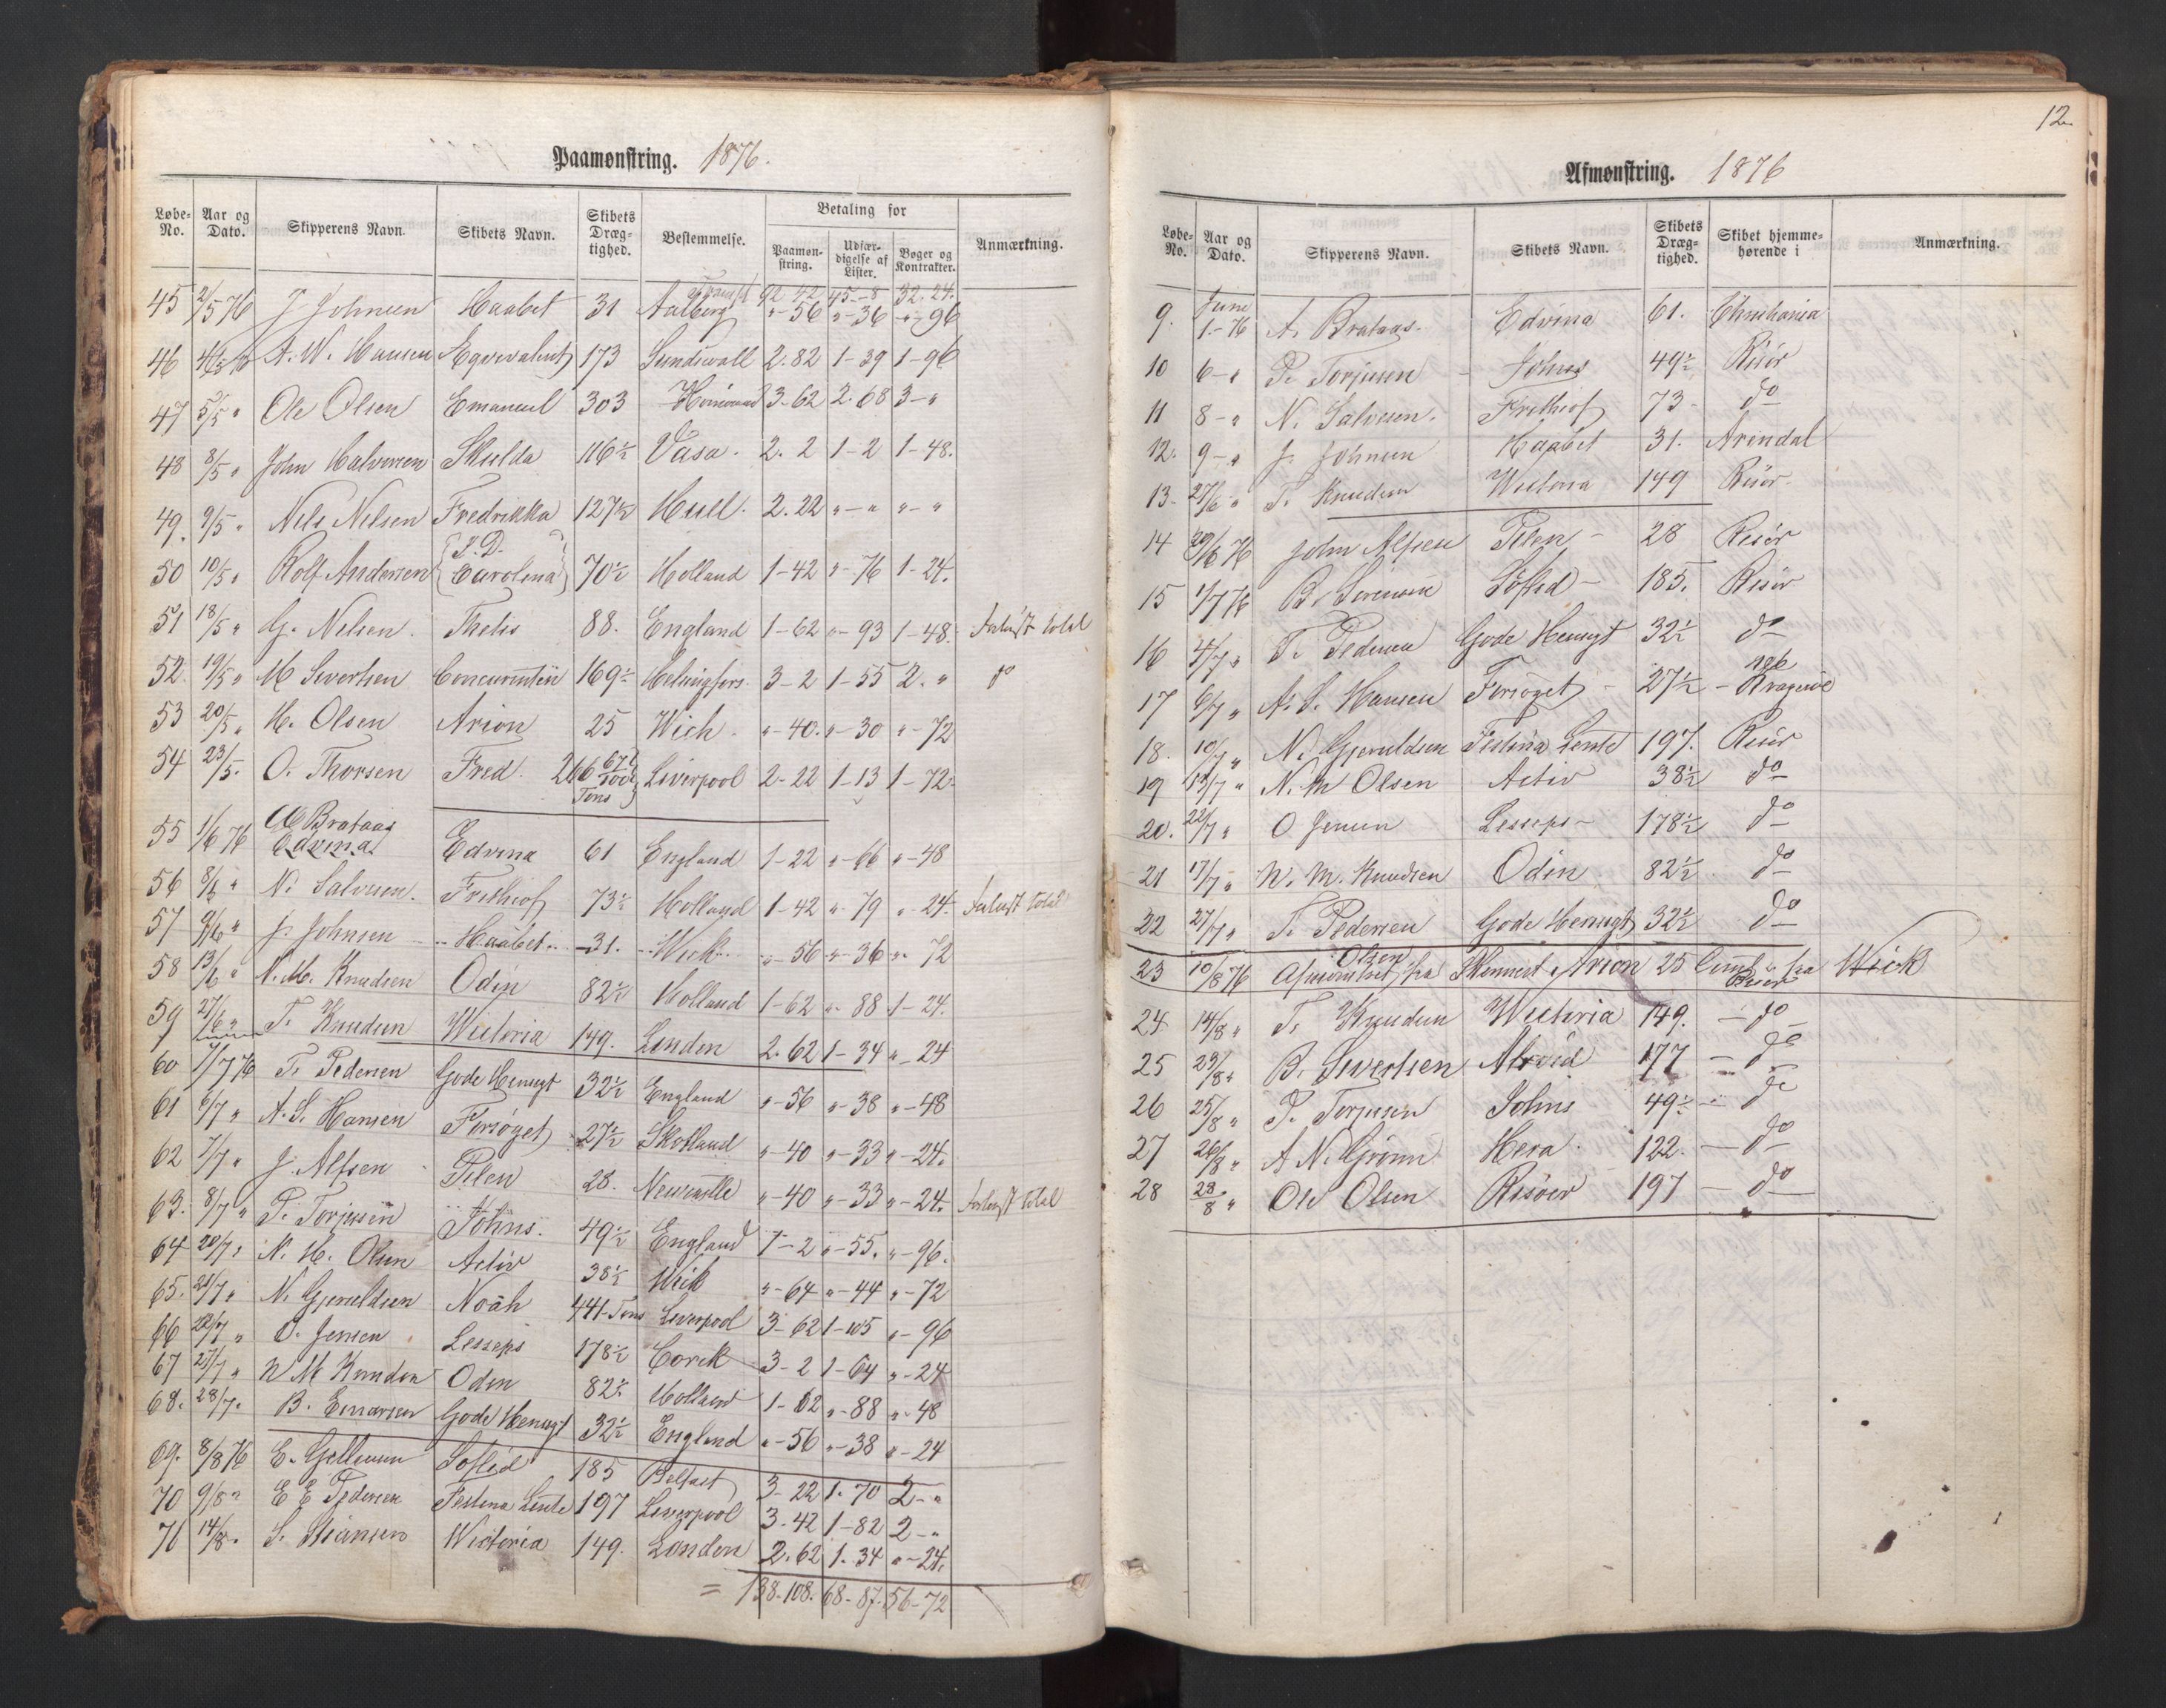 Paamønstring. 1876.
Løbe-No. Aar og Dato. Skipperens Navn. Skibets Navn. Skibets Dræg-tighed. Bestemmelse. Betaling for Paamøn-string. Udfær-digelse af Lister. Bøger og Kontrakter. Anmærkning.
Transp 92-42 45-8 32-24.
45 2/5 76 J Johnsen Haabet 31 Aalborg "-56 "-36 "-96
46 4/5 76 A. W. Hansen Eqvivalent 173 Sundswall 2.82 1-39 1-96
47 5/5 " Ole Olsen Emanuel 303 3-62 2.68 3-"
48 8/5 " John Halvorsen Skulda 116½ Vasa. 2.2 1-2 1-48.
49. 9/5 " Nils Nilsen Fredrikka 127½ Hull. 2.22 "-" "-"
50 10/5 " Rolf Andersen {S. D. Carolina} 70½ Holland 1-42 "-76 1-24.
51 18/5 " G. Nelsen. Thetis 88. England 1-62 "-93 1-48. total
52. 19/5 " M Sivertsen Concurrenten 169½ Helsingfors. 3-2 1-55 2." do
53 20/5 " H. Olsen Arion 25 Wich. "-40. "-30 "-72
54 23/5. O. Thorsen Fred. 266 67/100 Tons Liverpool 2-22 1-13 1-72.
55 1/6 76 Brataas Edvina Edvina 61 England 1-22 "-66 "-48
56 8/6 " N. Salvesen. Frithiof 73½ Holland 1-42 "-79 "-24. total
57 9/6 " J. Johnsen Haabet 31. Wick "-56 "-36 "-72
58 13/6 " N. M. Knudsen Odin 82½ Holland 1-62 "-88 1-24.
59 27/6 " T. Knudsen Wictoria 149. London 2.62 1-34 "-24
60 1/7 76 T. Pedersen Gode Hensigt 32½ England "-56 "-38 "-48
61 6/7 " A. S. Hansen Forsøget 27½ Skotland "-40 "-33 "-24.
62 7/7 " J. Alfsen Pilen 28. Newcastle "-40 "-33 "-24. total
63. 8/7 " P. Torjusen Johns. 49½ England 1-2 "-55. "-96.
64 20/7 " N. M. Olsen Activ 38½ Wick "-64 "-44 "-72
65. 21/7 " N. Gjeruldsen Noah 441-Tons Liverpool 3-62 1-105 "-96
66 22/7 " O. Jensen Lesseps 178½ Corck 3-2 1-64 "-24
67 27/7 " N M Knudsen Oden 82½ Holland 1-62 "-88 "-48
68. 28/7. B. Einarsen Gode Hensigt 32½ England "-56 "-38 "-24
69. 8/8 76 E. Gellesen Sosted 185 Belfast 3-22 1.70 2-"
70 9/8 " E E Pedersen Festina Lente 197 Liverpool 3.42 1-82 2-"
71 14/8. S. Wictoria 149. London 2.62 1.34 "-24.
= 138.108. 68-87. 56-72
12.
Afmønstring. 1876
Løbe-No. Aar og Dato. Skipperens Navn. Skibets Navn. Skibets Dræg-tighed. Skibet hjemme-hørende i Anmærkning.
9. June 1.-76 A. Brataas. Edvina 61. Christiania
10 6-" P. Torjusen Johns 49½ Risør
11 8-" N. Salvesen. Frithiof 73 do
12. 9-" J. Johnsen Haabet 31. Arendal
13. 27/6 " T. Knudsen Wictoria 149 Risør.
14 29/6 76 John Alfsen Pilen 28 Risør
15 1/7 76 B. Sivertsen Sosted 185. Risør
16 4/7 " T. Pedersen Gode Hensigt 32½ do
17 6/7 " A. S. Hansen Forsøget 27½ Kragerøe
18. 10/7 " N. Gjeruldsen Festina Lente 197. Risør
19 13/7 " N. M Olsen Activ 38½ do
20. 22/7 " O Jensen Lesseps 178½ do
21 17/7 " N. M. Knudsen Odin 82½ do
22 27/7 " T. Pedersen Gode Hensigt 32½ do
23 10/8 76 Afmønstret Olsen fra Skonnert Arion 25 Coml Risør fra Wick
24 14/8 " T. Knudsen Wictoria 149. do
25 23/8 " B. Sivertsen 177 do
26 25/8 " P. Torjusen Johns 49½ do
27 26/8 " A N. Grønn Hera 122. do
28 28/8 " Ole Olsen Risøer 197 do